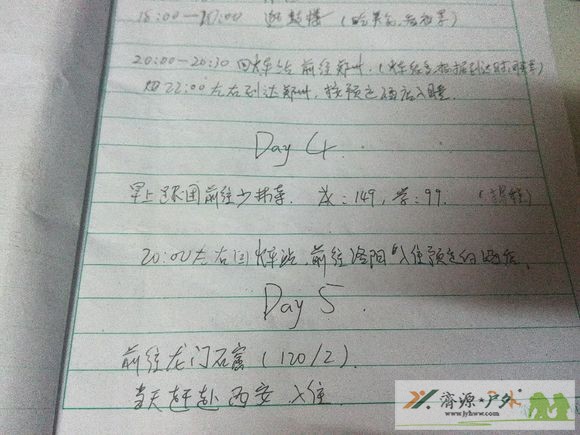 18:00—20:00 逛鼓楼 (
20:00—20:30 回火车站 前往郑州. (火车信息根据到达时间再看)
22:00左右到达郑州, 按预定酒店入睡.
Day 4.
早上跟团前往少林寺. 成:149, 学:99. (
20:00左右回火车站, 前往洛阳 入住预定的酒店.
Day 5
前往龙门石窟 (120/2).
当天赶赴西安 入住.
济源·户外
www.jyhww.com